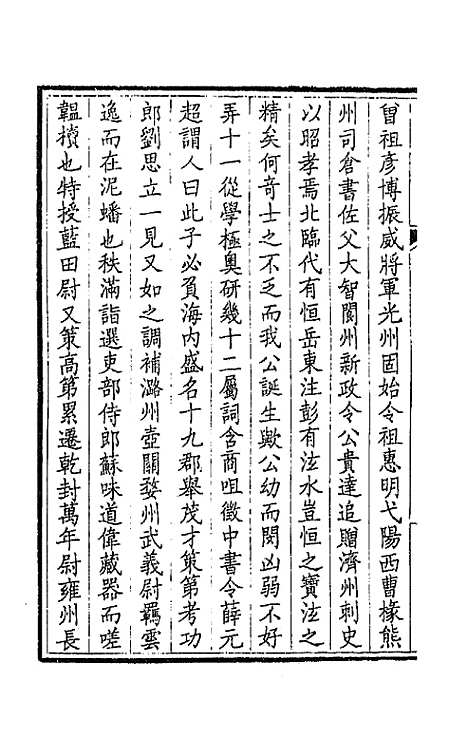 曾祖彥博振威將軍光州固始令祖惠明弋陽西曹椽熊
州司倉書佐父大智閬州新政令公貴達追贈濟州刺史
以昭孝焉北臨代有恒岳東注彭有泫水豈恒之寶泫之
精矣何奇士之不乏而我公誕生歟公幼而閔凶弱不好
弄十一從學極奥研幾十二屬詞含商咀徵中書令薛元
超謂人曰此子必負海内盛名十九郡舉茂才策第考功
郎劉思立一見又如之調補潞州壺關婺州武義尉羈雲
逸而在泥蟠也秩滿詣選吏部侍郎蘇味道偉藏器而嗟
韞櫝也特授藍田尉又策高第累遷乾封萬年尉雍州長